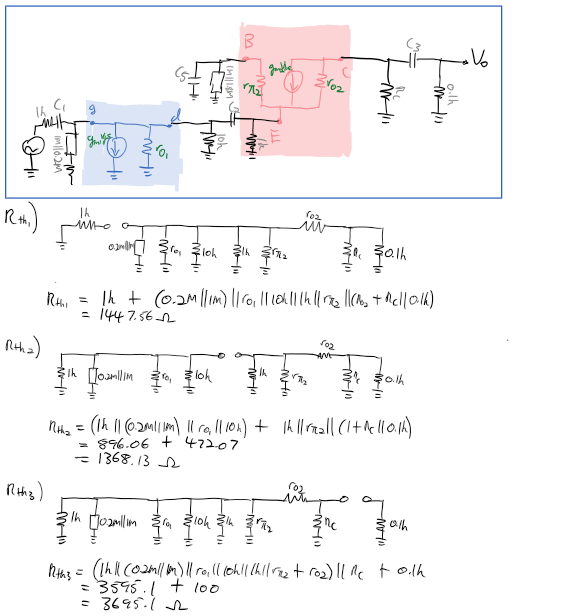 B
C5
1M||1M
rπ2
gmvbe
ro2
C
C3
Vo
Rc
0.1k
1k
C1
g
d
gm1vgs
ro1
10k
C2
1k
E
Rth1)
1k
0.2M||1M
ro1
10k
1k
rπ2
ro2
Rc
0.1k
Rth1 = 1k + (0.2M||1M)||ro1||10k||1k||rπ2||(ro2 + Rc||0.1k)
= 1447.56 Ω
Rth2)
1k
0.2M||1M
ro1
10k
1k
rπ2
ro2
Rc
0.1k
Rth2 = (1k||(0.2M||1M)||ro1||10k) + 1k||rπ2||(1+Rc||0.1k)
= 896.06 + 472.07
= 1368.13 Ω
Rth3)
1k
0.2M||1M
ro1
10k
1k
rπ2
ro2
Rc
0.1k
Rth3 = (1k||(0.2M||1M)||ro1||10k||1k||rπ2 + ro2)||Rc + 0.1k
= 3595.1 + 100
= 3695.1 Ω